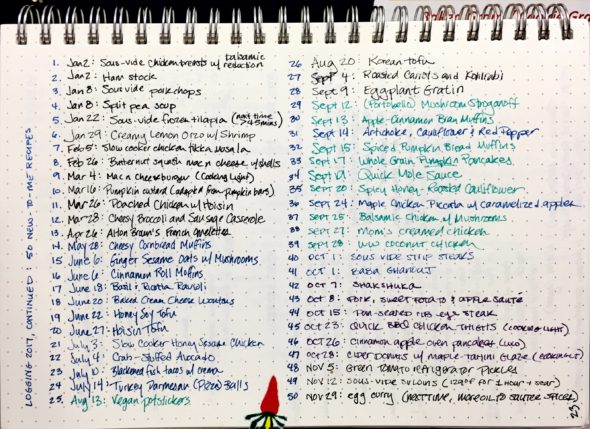 LOGGING 2017, CONTINUED: 50 NEW-TO-ME RECIPES
1. Jan 2: Sous-vide Chicken breasts w/ balsamic reduction
2. Jan 2: Ham stock
3. Jan 8: Sous vide pork chops
4. Jan 8: Split pea soup
5. Jan 22: Sous-vide frozen tilapia (next time >45mins)
6. Jan 29: Creamy Lemon Orzo w/ Shrimp
7. Feb 5: Slow cooker chicken tikka masala
8. Feb 26: Butternut squash mac n cheese w/ shells
9. Mar 4: Mac n Cheeseburger (Cooking Light)
10. Mar 16: Pumpkin custard (adapted from pumpkin bars)
11. Mar 26: Poached Chicken w/ Hoisin
12. Mar 28: Cheesy Broccoli and Sausage Casserole
13. Apr 26: Alton Brown's French Omelettes
14. May 28: Cheesy Cornbread Muffins
15. June 6: Ginger Sesame Oats w/ Mushrooms
16. June 6: Cinnamon Roll Muffins
17. June 18: Basil Ricotta Ravioli
18. June 20: Baked Cream Cheese Wontons
19. June 22: Honey Soy Tofu
20. June 27: Hoisin Tofu
21. July 3: Slow Cooker Honey Sesame Chicken
22. July 4: Crab-Stuffed Avocado
23. July 10: Blackened fish tacos w/ crema
24. July 14: Turkey Parmesan (Pizza) Balls
25. Aug 13: Vegan potstickers
26 Aug 20: Korean tofu
27 Sept 4: Roasted Carrots and Kohlrabi
28 Sept 9: Eggplant Gratin
29 Sept 12: (Portobello) Mushroom Stroganoff
30 Sept 13: Apple-Cinnamon Bran Muffins
31 Sept 14: Artichoke, Cauliflower & Red Pepper
32 Sept 15: Spiced Pumpkin Bread Muffins
33 Sept 17: Whole Grain Pumpkin Pancakes
34 Sept 19: Quick Mole Sauce
35 Sept 20: Spicy Honey-Roasted Cauliflower
36 Sept 24: Maple Chicken Piccata w/ caramelized apples
37 Sept 25: Balsamic Chicken w/ Mushrooms
38 Sept 27: Mom's creamed chicken
39 Sept 28: WW coconut chicken
40 Oct 1: Sous vide strip steaks
41 Oct 1: Baba Ghanouj
42 Oct 7: Shakshuka
43 Oct 8: Pork, Sweet Potato & Apple Sauté
44 Oct 15: Pan-seared rib eye steak
45 Oct 23: Quick BBQ Chicken Thighs (Cooking Light)
46 Oct 26: Cinnamon apple oven pancake
47 Oct 28: Cider Donuts w/ Maple-Tahini Glaze
48 Nov 5: Green Tomato refrigerator Pickles
49 Nov 12: Sous-vide sirloins (129°F for 1 hour + sear)
50 Nov 29: egg curry (next time, more oil to sauter spices)
23